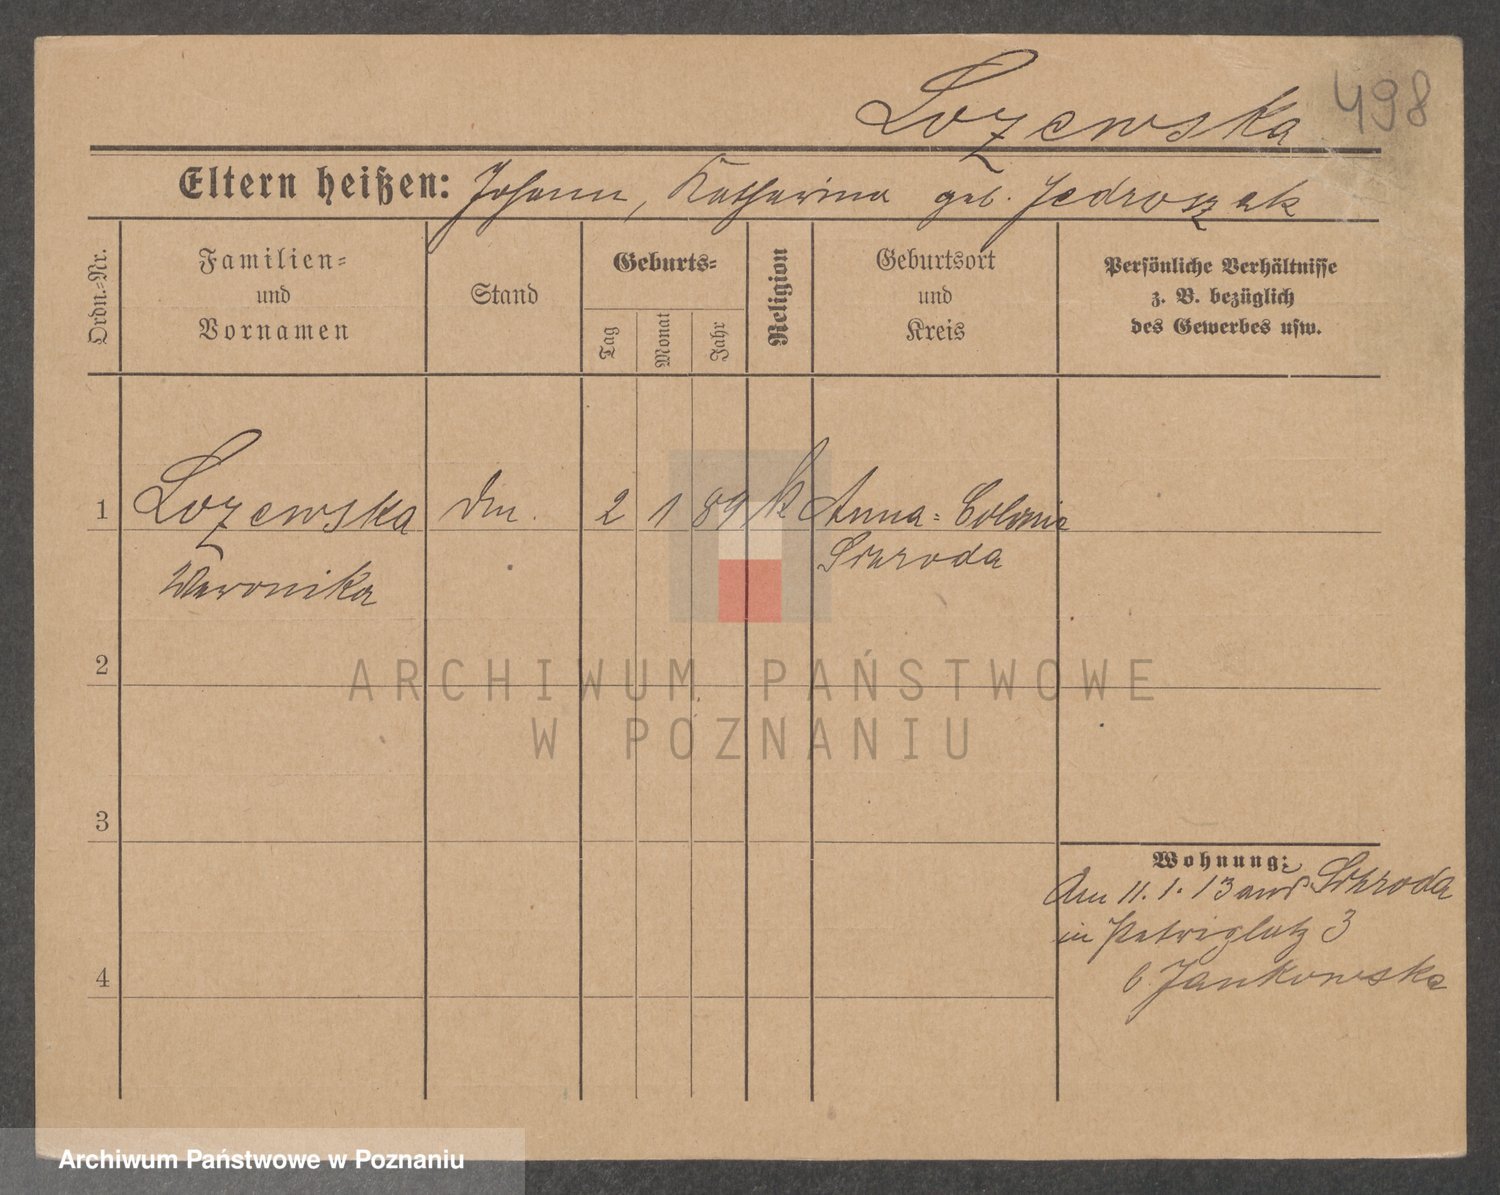 Lozewska 498
Eltern heißen: Johann, Katharina geb. Jedroszak
Ordn.=Nr.
Familien=
und
Vornamen
Stand
Geburts=
Tag
Monat
Jahr
Religion
Geburtsort
und
Kreis
Persönliche Verhältnisse
z. B. bezüglich
des Gewerbes usw.
1 Lozewska 2 1 89 k Anna=Colonie
Schroda
Weronika
2
3
4
Wohnung:
Am 11.1.13 aus Schroda
in Petriplatz 3
b. Jankowska
ARCHIWUM PAŃSTWOWE
W POZNANIU
Archiwum Państwowe w Poznaniu